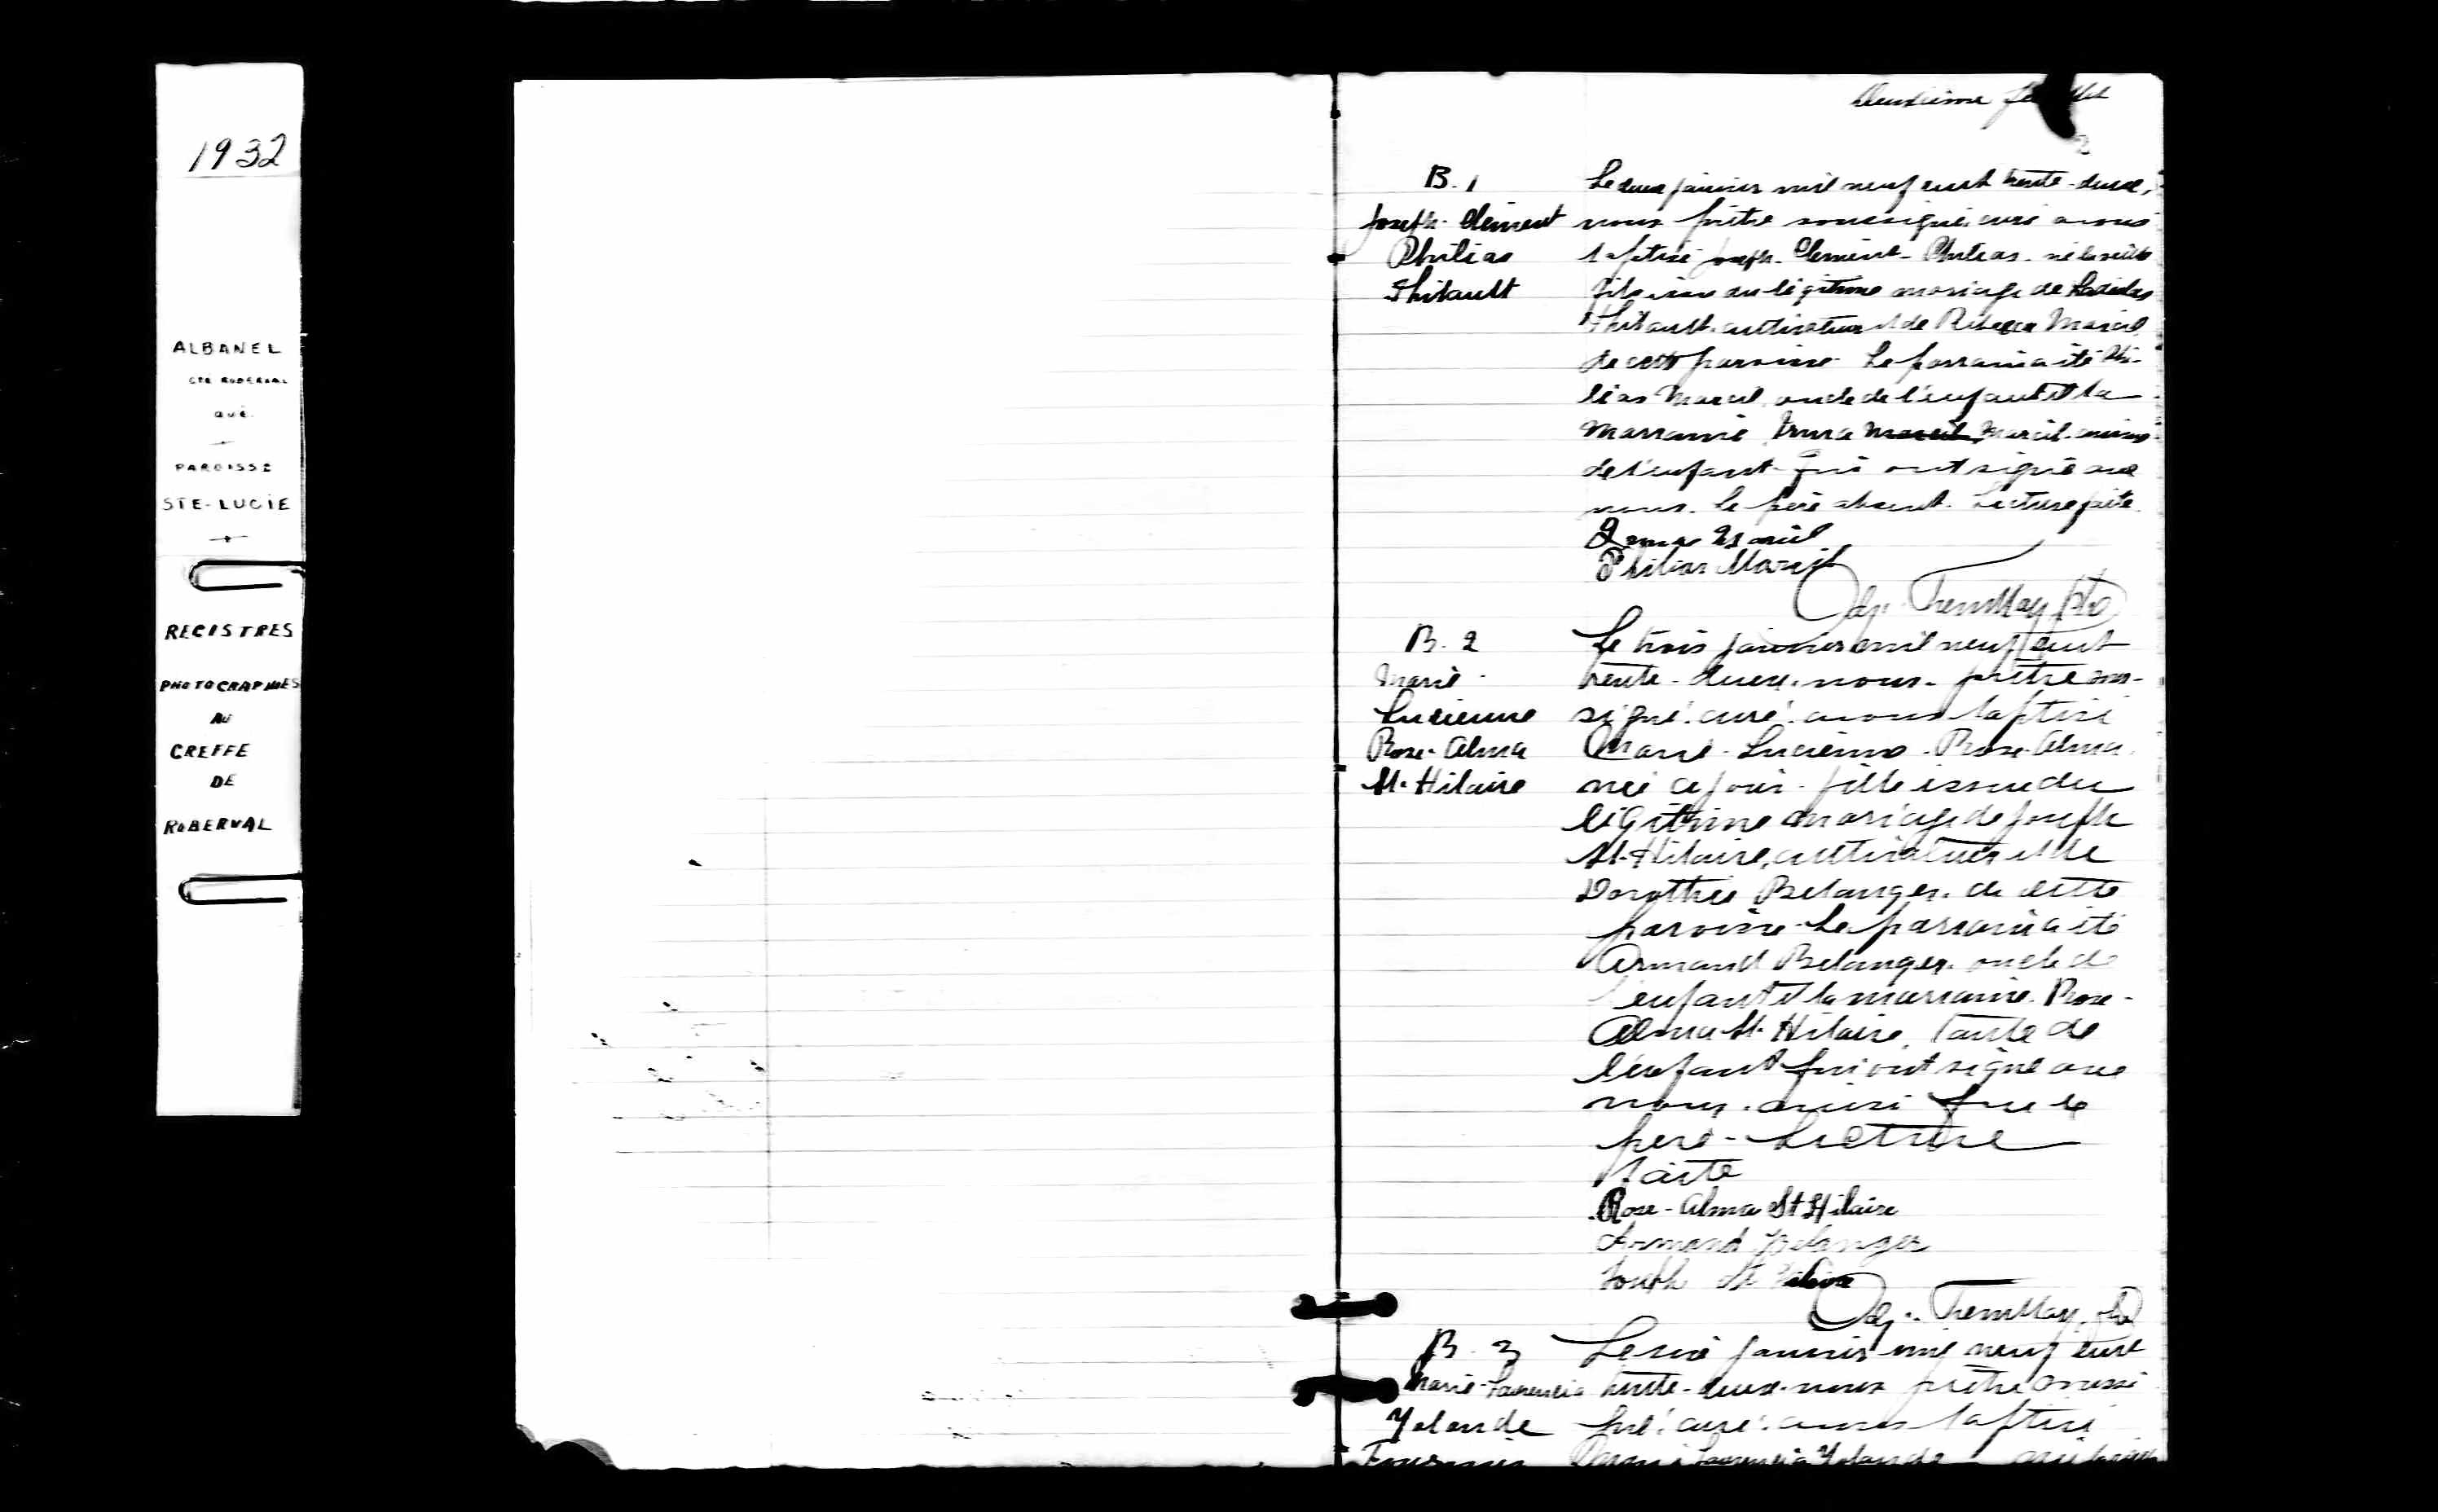 1932
ALBANEL
CTÉ ROBERVAL
QUÉ.
PAROISSE
STE-LUCIE
REGISTRES
PHOTOGRAPHIÉS
AU
GREFFE
DE
ROBERVAL
Deuxième
2
B. 1
Joseph-Clément
Philias
Thibault
Le deux janvier mil neuf cent trente-deux,
nous prêtre soussigné curé avons
baptisé Joseph-Clément-Philias né la veille
fils issu du légitime mariage de
Thibault cultivateur et de Rebecca Marcil
de cette paroisse. Le parrain a été Phi-
lias Marcil, oncle de l'enfant et la
marraine Irma Marcil Marcil
de l'enfant qui ont signé avec
nous. Le père absent. Lecture faite.
Irma Marcil
Philias Marcil
Tremblay ptre
B. 2
Marie-
Lucienne
Rose-Alma
St-Hilaire
Le trois janvier mil neuf cent
trente-deux, nous prêtre sous-
signé curé avons baptisé
Marie-Lucienne-Rose-Alma
née ce jour fille issue du
légitime mariage de Joseph
St-Hilaire, cultivateur et de
Dorothée Belanger de cette
paroisse. Le parrain a été
Armand Belanger oncle de
l'enfant et la marraine Rose-
Alma St-Hilaire, tante de
l'enfant qui ont signé avec
nous ainsi que le
père - Lecture
faite
Rose-Alma St Hilaire
Armand Belanger
Joseph St Hilaire
Tremblay ptre
B. 3
Marie-Laurencia
Yolande
Fournier
Le six janvier mil neuf cent
trente-deux nous prêtre soussi
gné curé avons baptisé
Marie Laurencia Yolande née la veille